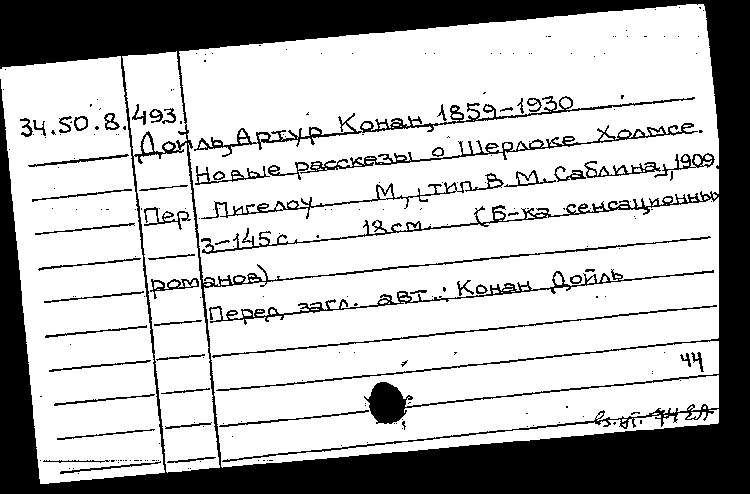 34.50.8.493.
Дойль, Артур Конан, 1859-1930
Новые рассказы о Шерлоке Холмсе.
Пер Пигелоу. М., [тип. В. М. Саблина], 1909.
3-145с. 18см. (Б-ка сенсационных
романов).
Перед загл. авт.: Конан Дойль
44